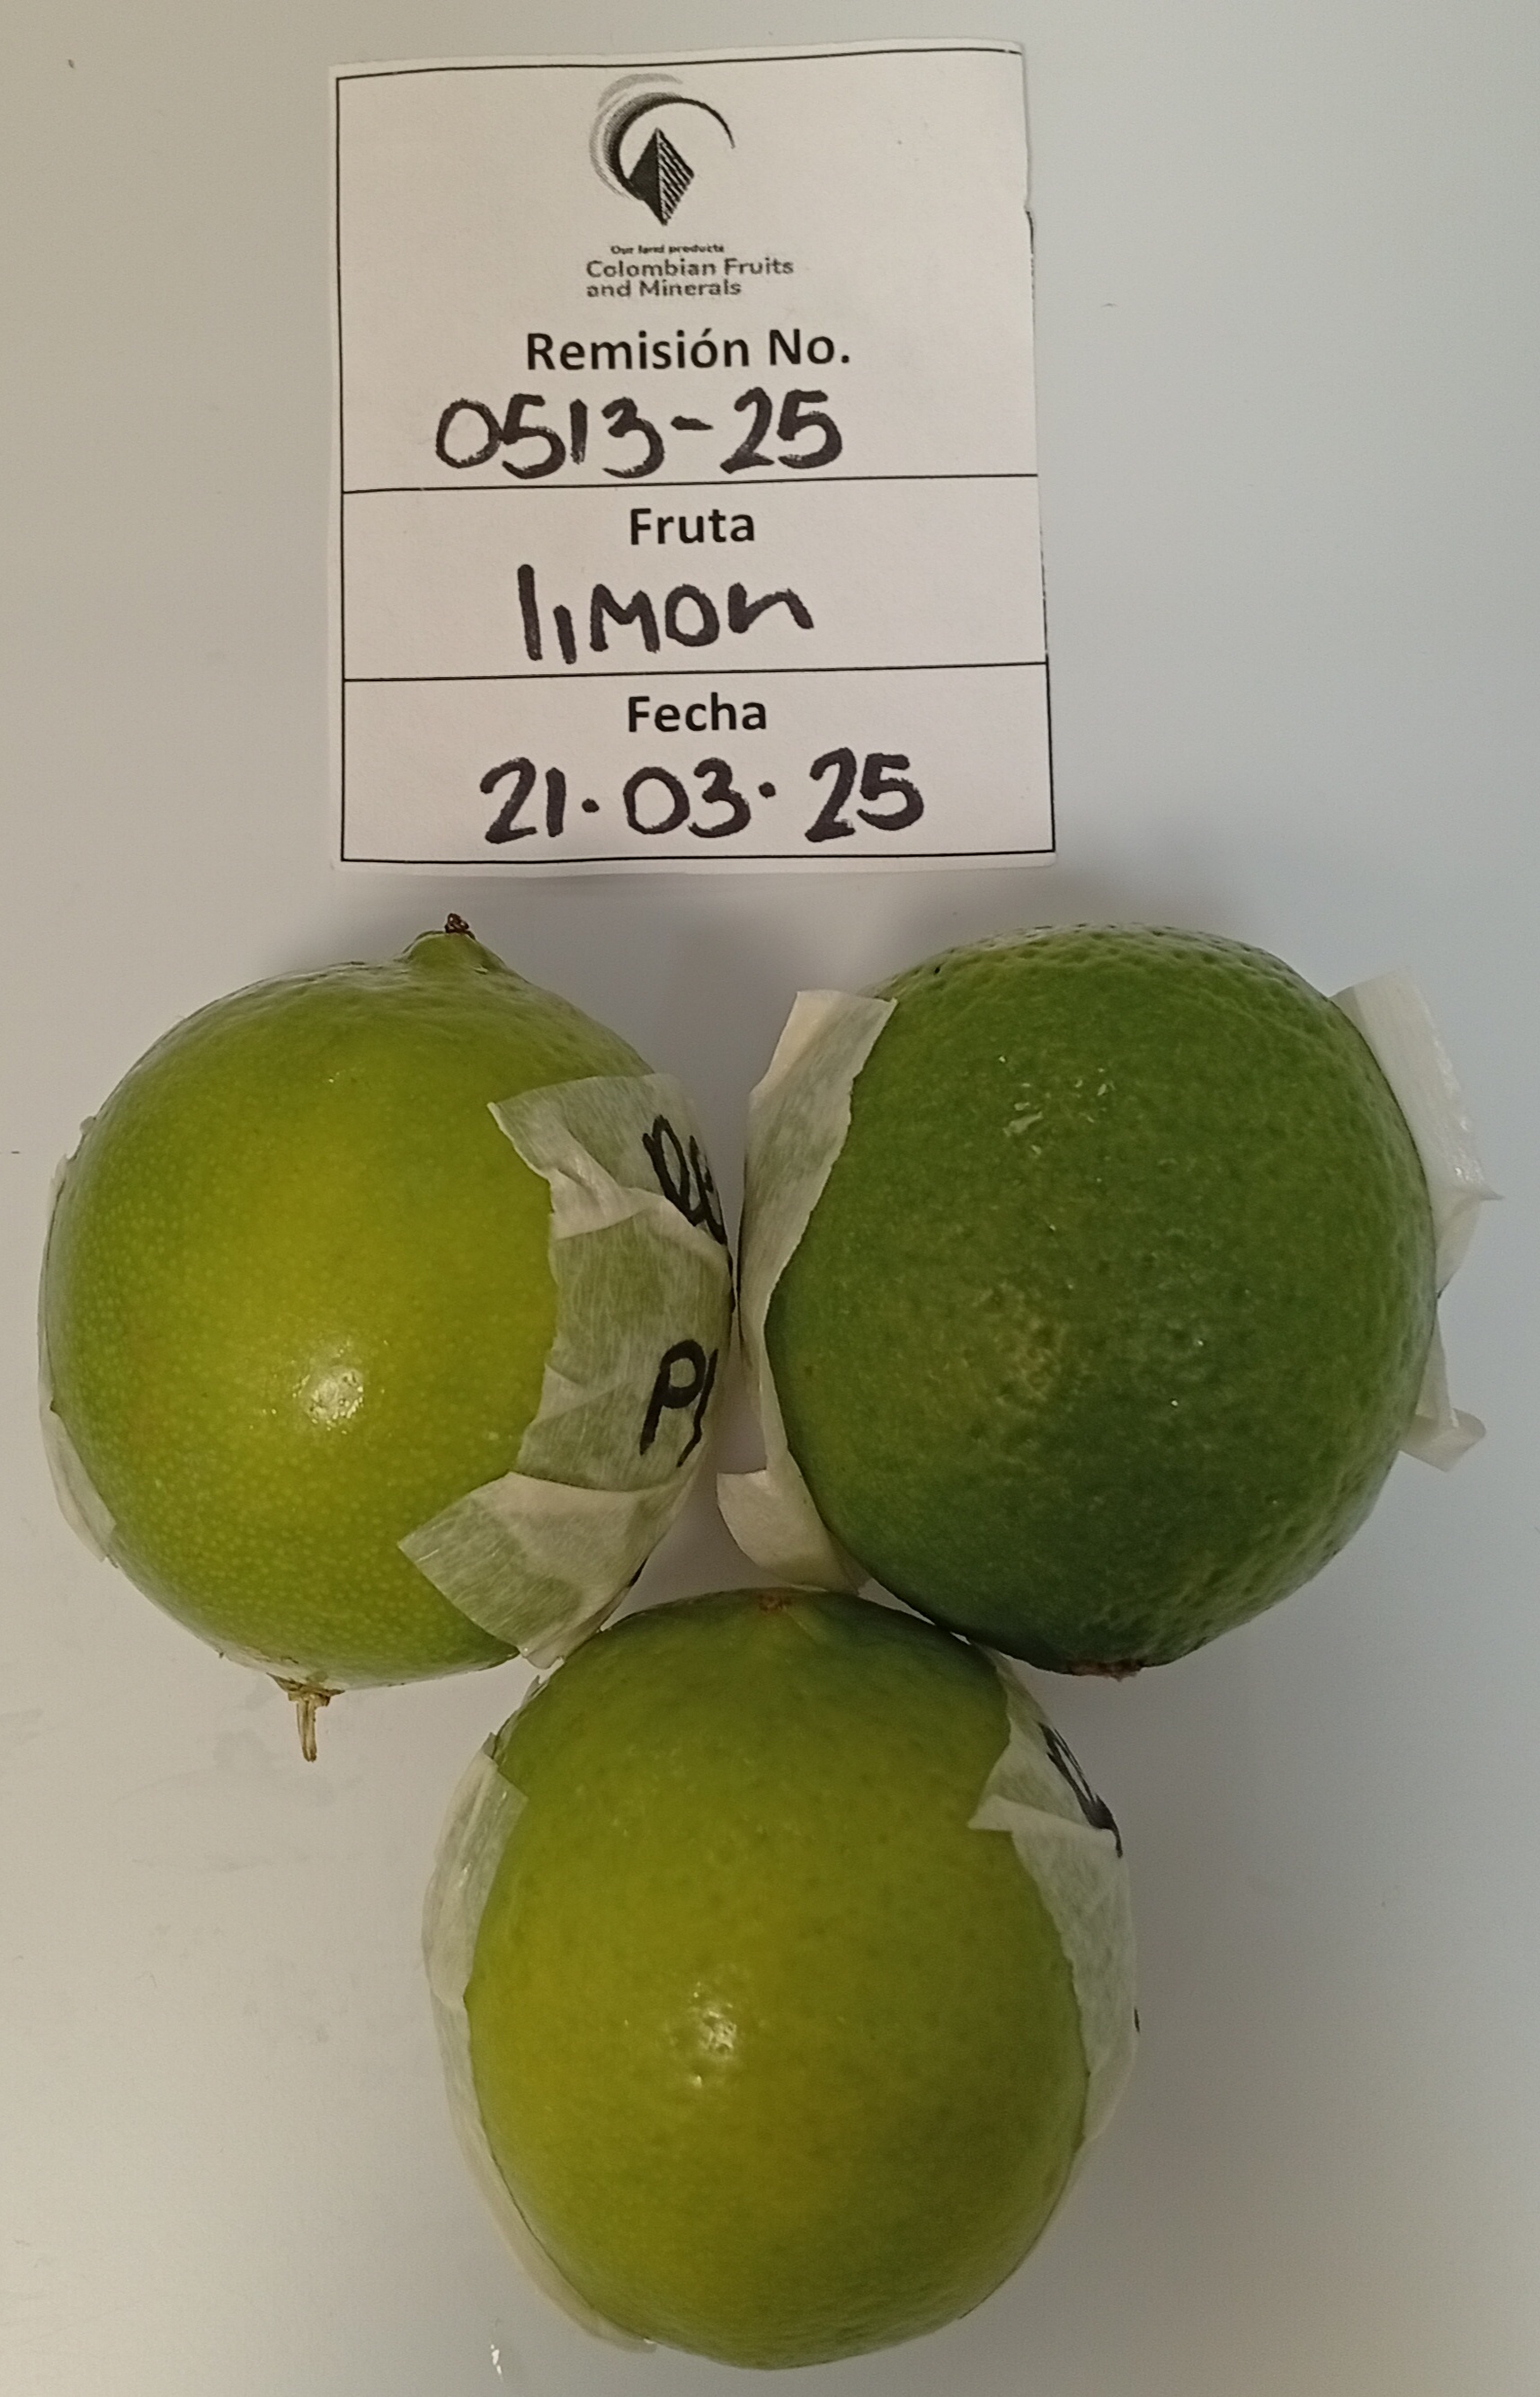 Our land products
Colombian Fruits
and Minerals
Remisión No.
0513-25
Fruta
limon
Fecha
21.03.25